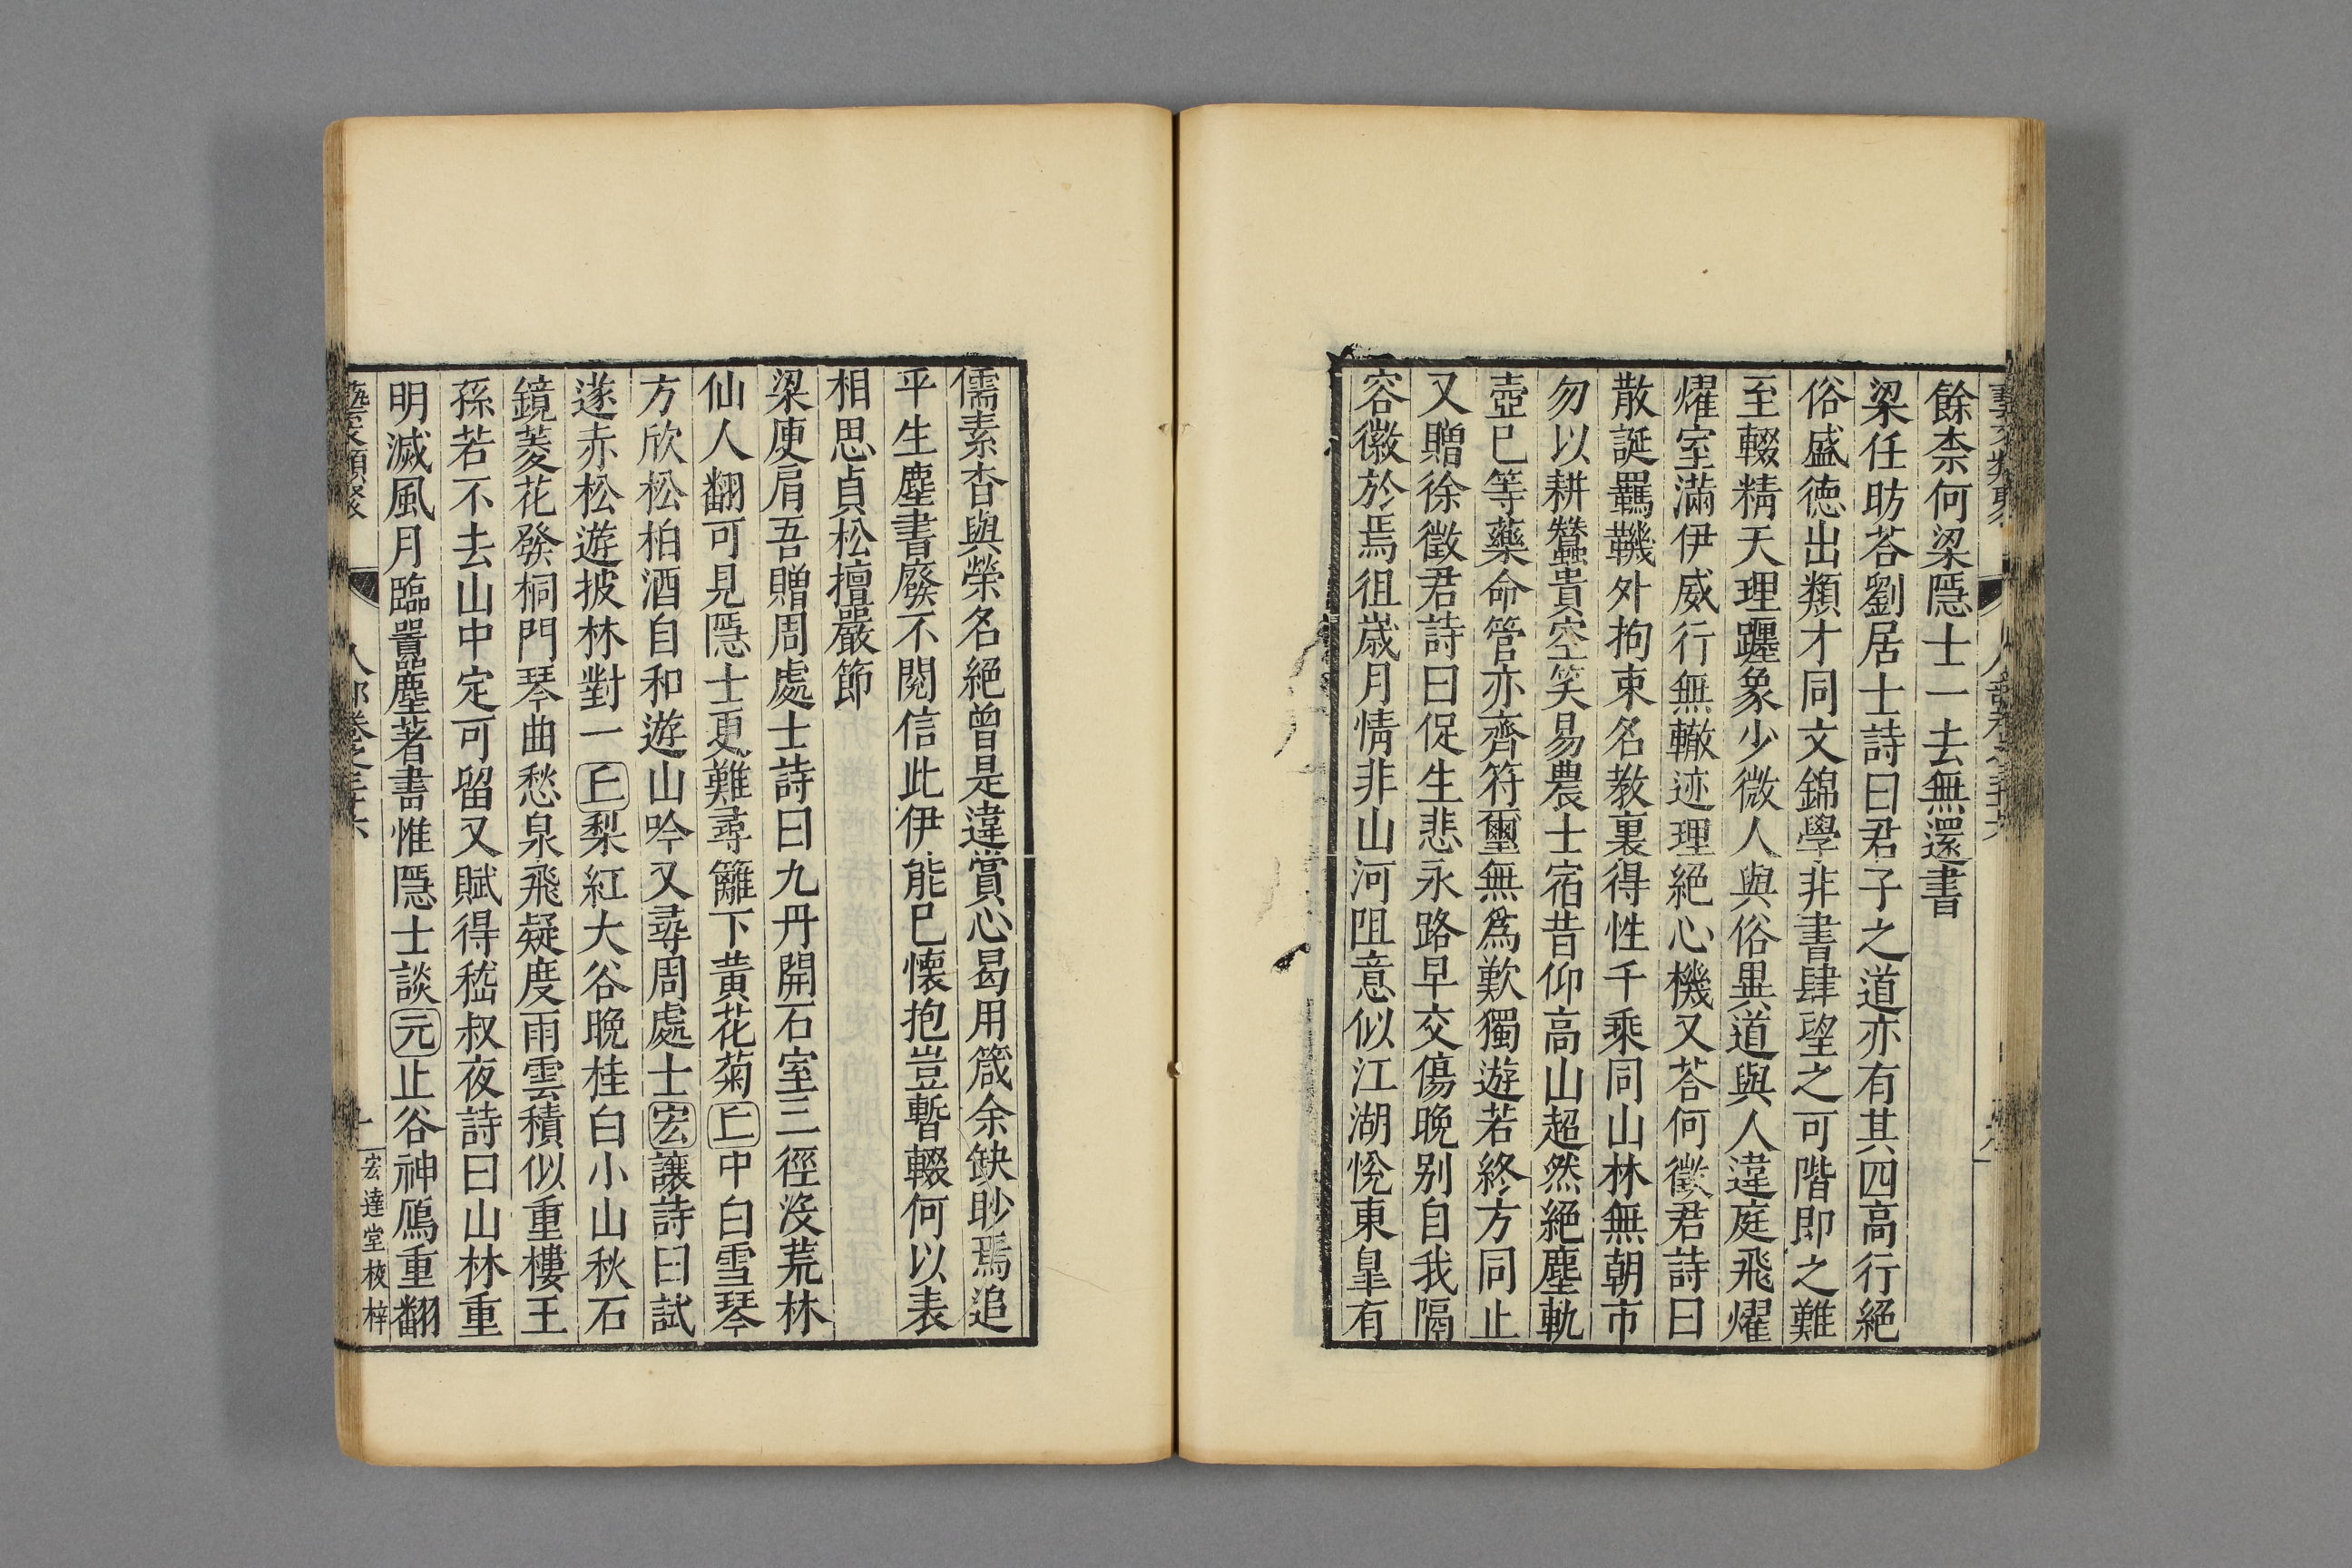 餘柰何梁隱士一去無還書
梁任昉荅劉居士詩曰君子之道亦有其四高行絕
俗盛德出類才同文錦學非書肆望之可階即之難
至輟精天理躔象少微人與俗異道與人違庭飛燿
燿室滿伊威行無轍迹理絕心機又荅何徵君詩曰
散誕羈鞿外拘束名教裏得性千乘同山林無朝市
勿以耕蠶貴空笑易農士宿昔仰高山超然絕塵軌
壺已等藥命管亦齊符璽無爲歎獨遊若終方同止
又贈徐徵君詩曰促生悲永路早交傷晚别自我隔
容徽於焉徂歲月情非山河阻意似江湖悅東皐有
儒素杳與榮名絕曾是違賞心曷用箴余缺眇焉追
平生塵書廢不閱信此伊能已懷抱豈暫輟何以表
相思貞松擅嚴節
梁庾肩吾贈周處士詩曰九丹開石室三徑沒荒林
仙人翻可見隱士更難尋籬下黃花菊丘中白雪琴
方欣松柏酒自和遊山吟又尋周處士宏讓詩曰試
遂赤松遊披林對一丘梨紅大谷晚桂白小山秋石
鏡菱花發桐門琴曲愁泉飛疑度雨雲積似重樓王
孫若不去山中定可留又賦得嵇叔夜詩曰山林重
明滅風月臨嚻塵著書惟隱士談元止谷神鴈重翻
藝文類聚 人部卷之三十六 十 宏達堂校梓